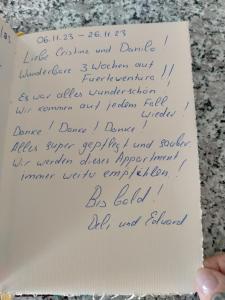 06.11.23 - 26.11.23
Liebe Cristine und Danilo!
Wunderbare 3 Wochen auf
Fuerteventura!!
Es war alles wunderschön!
Wir kommen auf jedem Fall
wieder!
Danke! Danke! Danke!
Alles super gepflegt und sauber.
Wir werden dieses Appartment
immer weiter empfehlen!
Bis bald!
und Edward